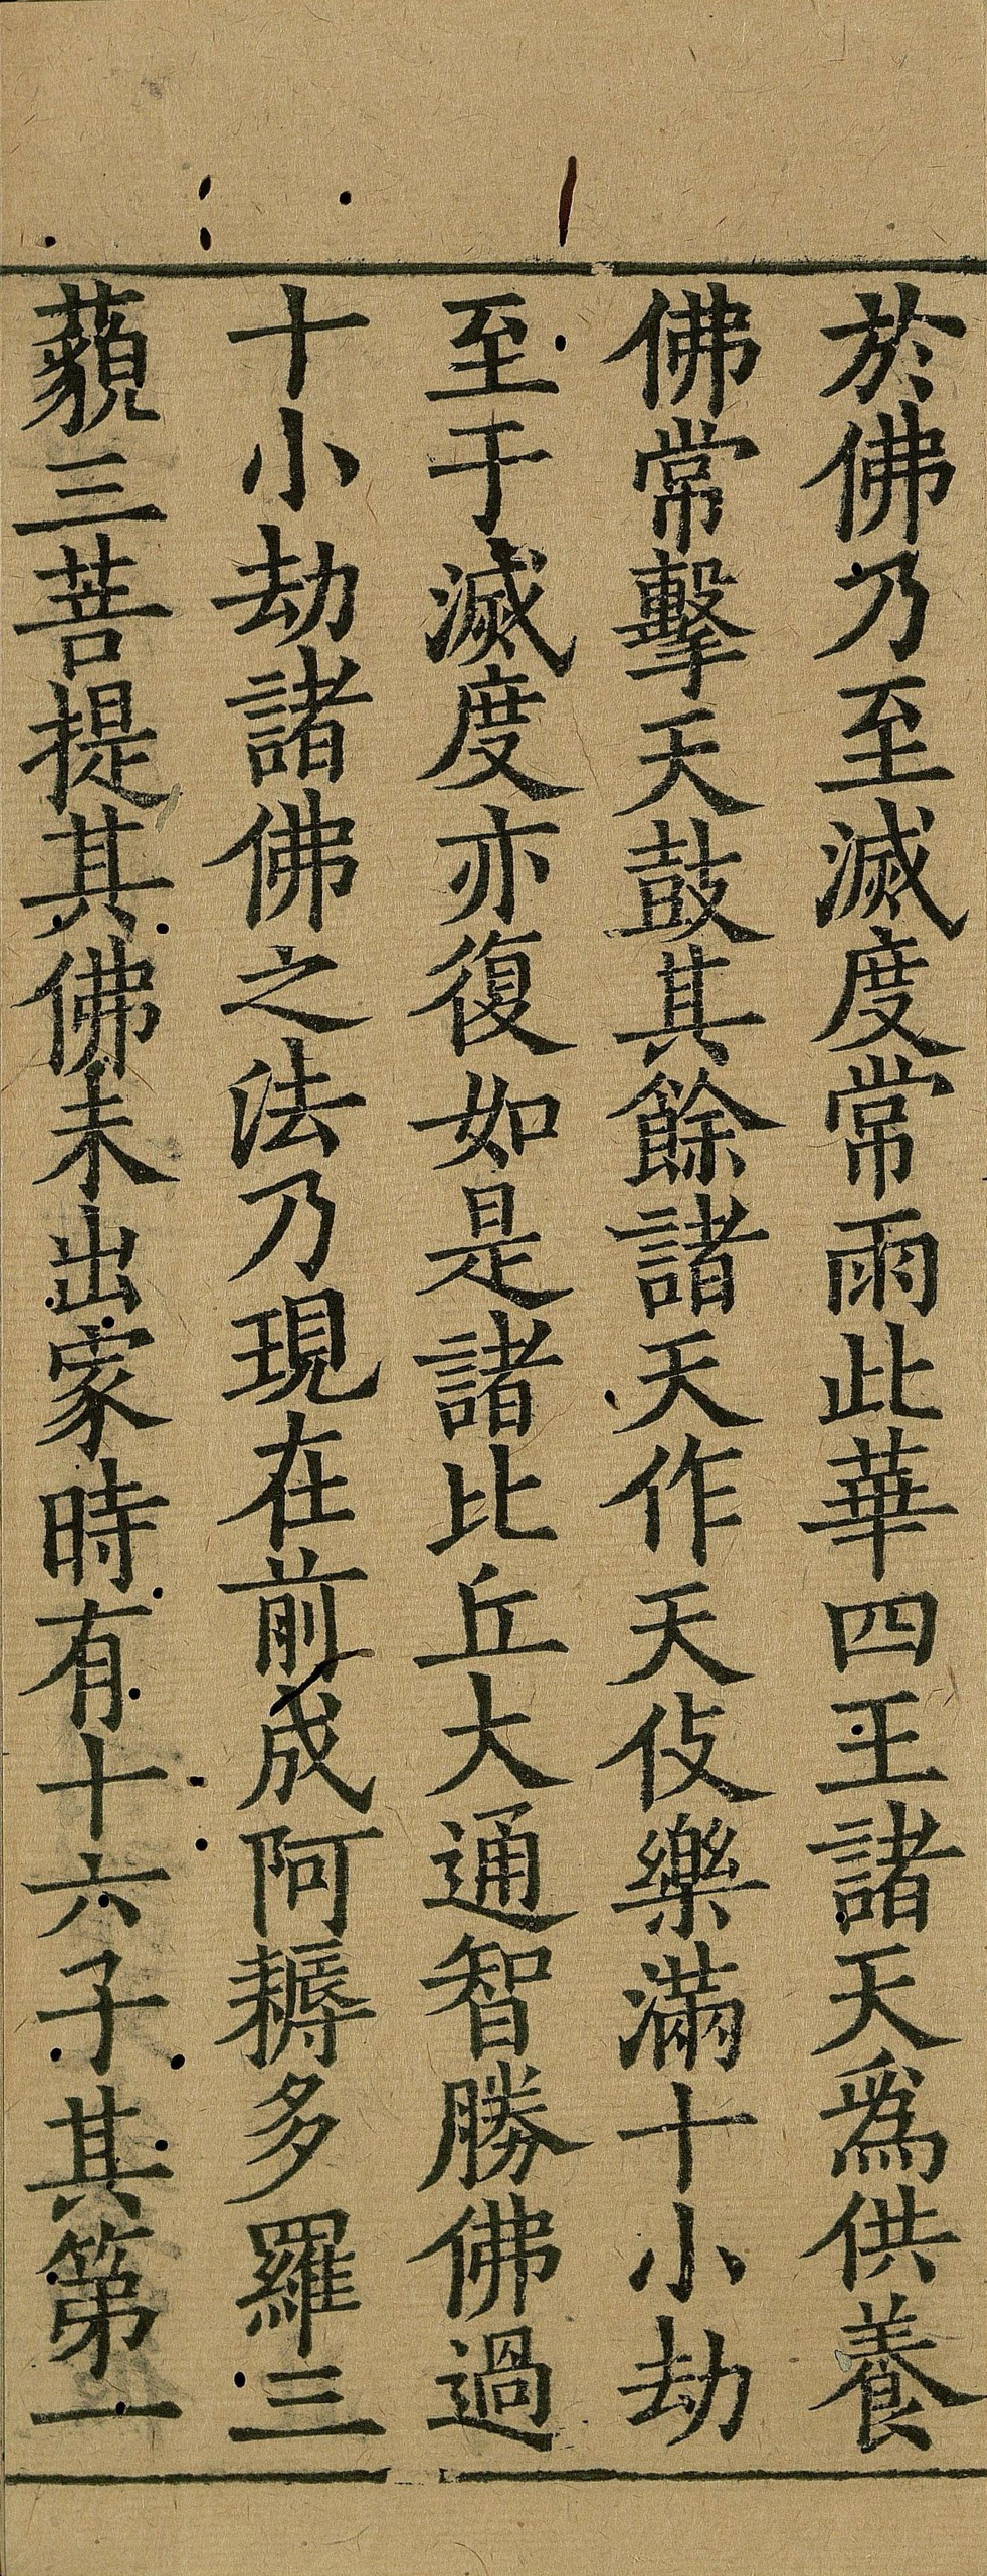 於佛乃至滅度常雨此華四王諸天爲供養
佛常擊天鼓其餘諸天作天伎樂滿十小劫
至于滅度亦復如是諸比丘大通智勝佛過
十小劫諸佛之法乃現在前成阿耨多羅三
藐三菩提其佛未出家時有十六子其第一